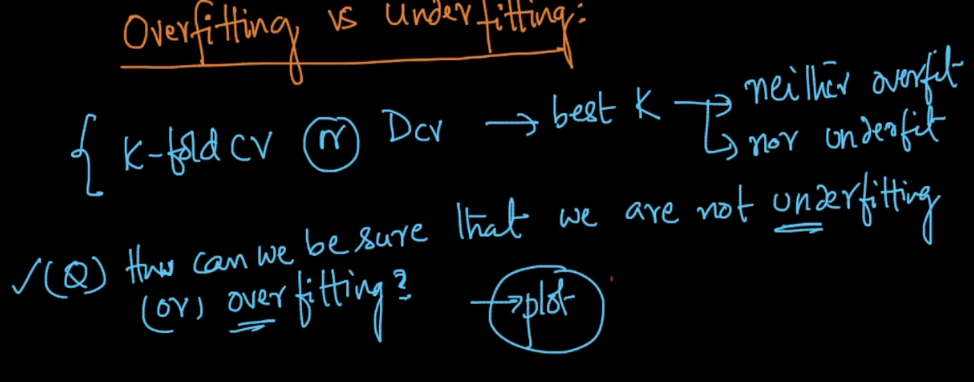 Overfitting vs Underfitting:
{ K-fold CV or Dcv → best K → neither overfit
↳ nor underfit
✓(Q) How can we be sure that we are not underfitting
(or) overfitting? → plot